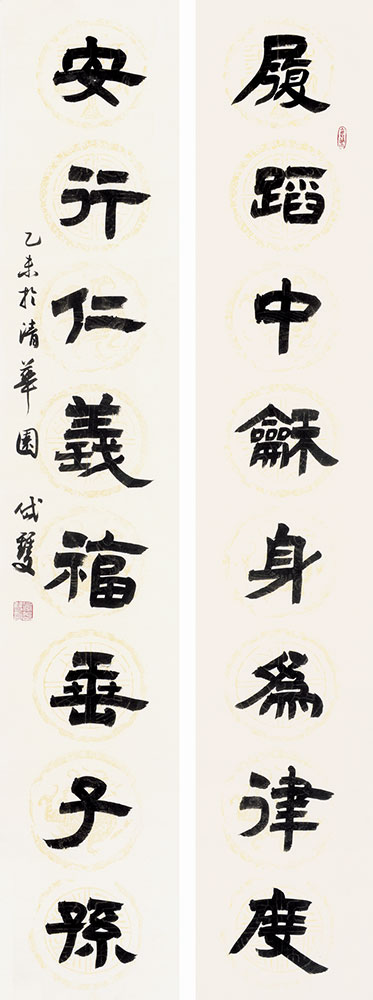 履蹈中龢身爲律度
安行仁義福垂子孫
乙未於清華園